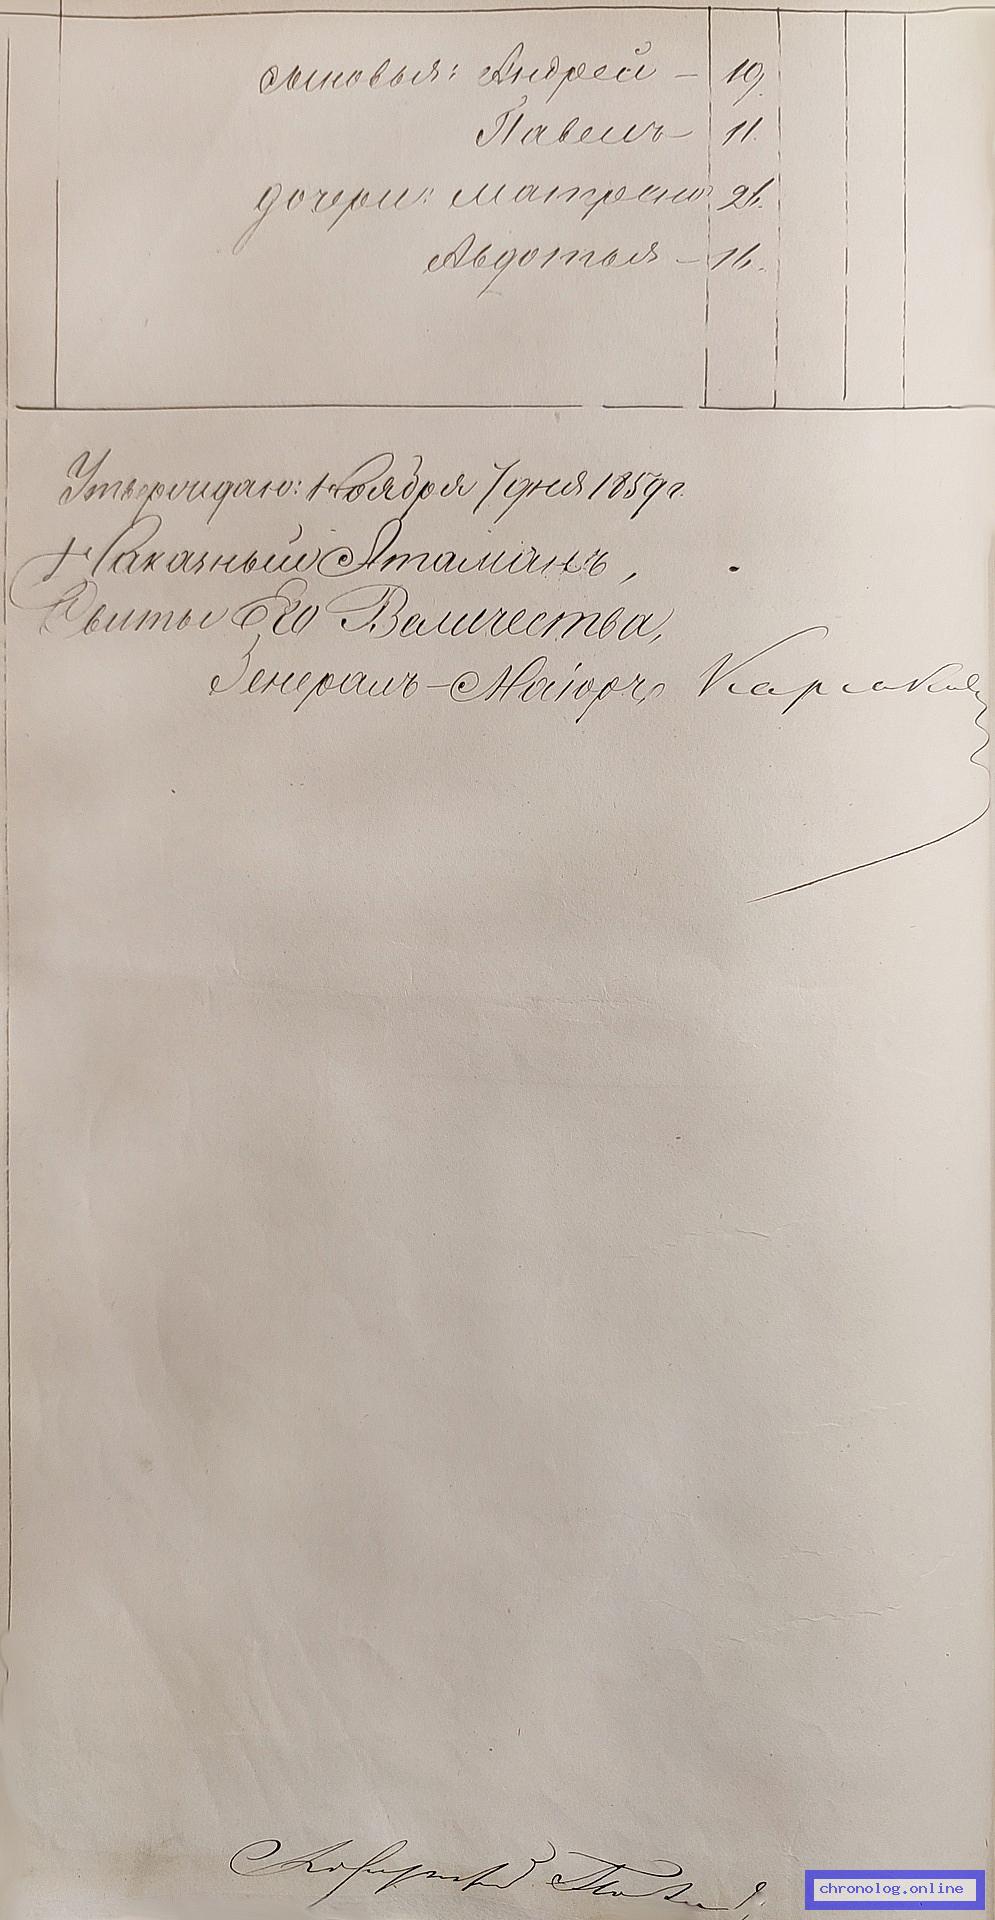 сыновья: Андрей – 19.
Павелъ – 11.
дочери: Матрена 21.
Авдотья – 16.
Утверждаю: Ноября 7 дня 1859 г.
Наказный Атаманъ,
Свиты Его Величества,
Генералъ-Маіоръ,
chronolog.online